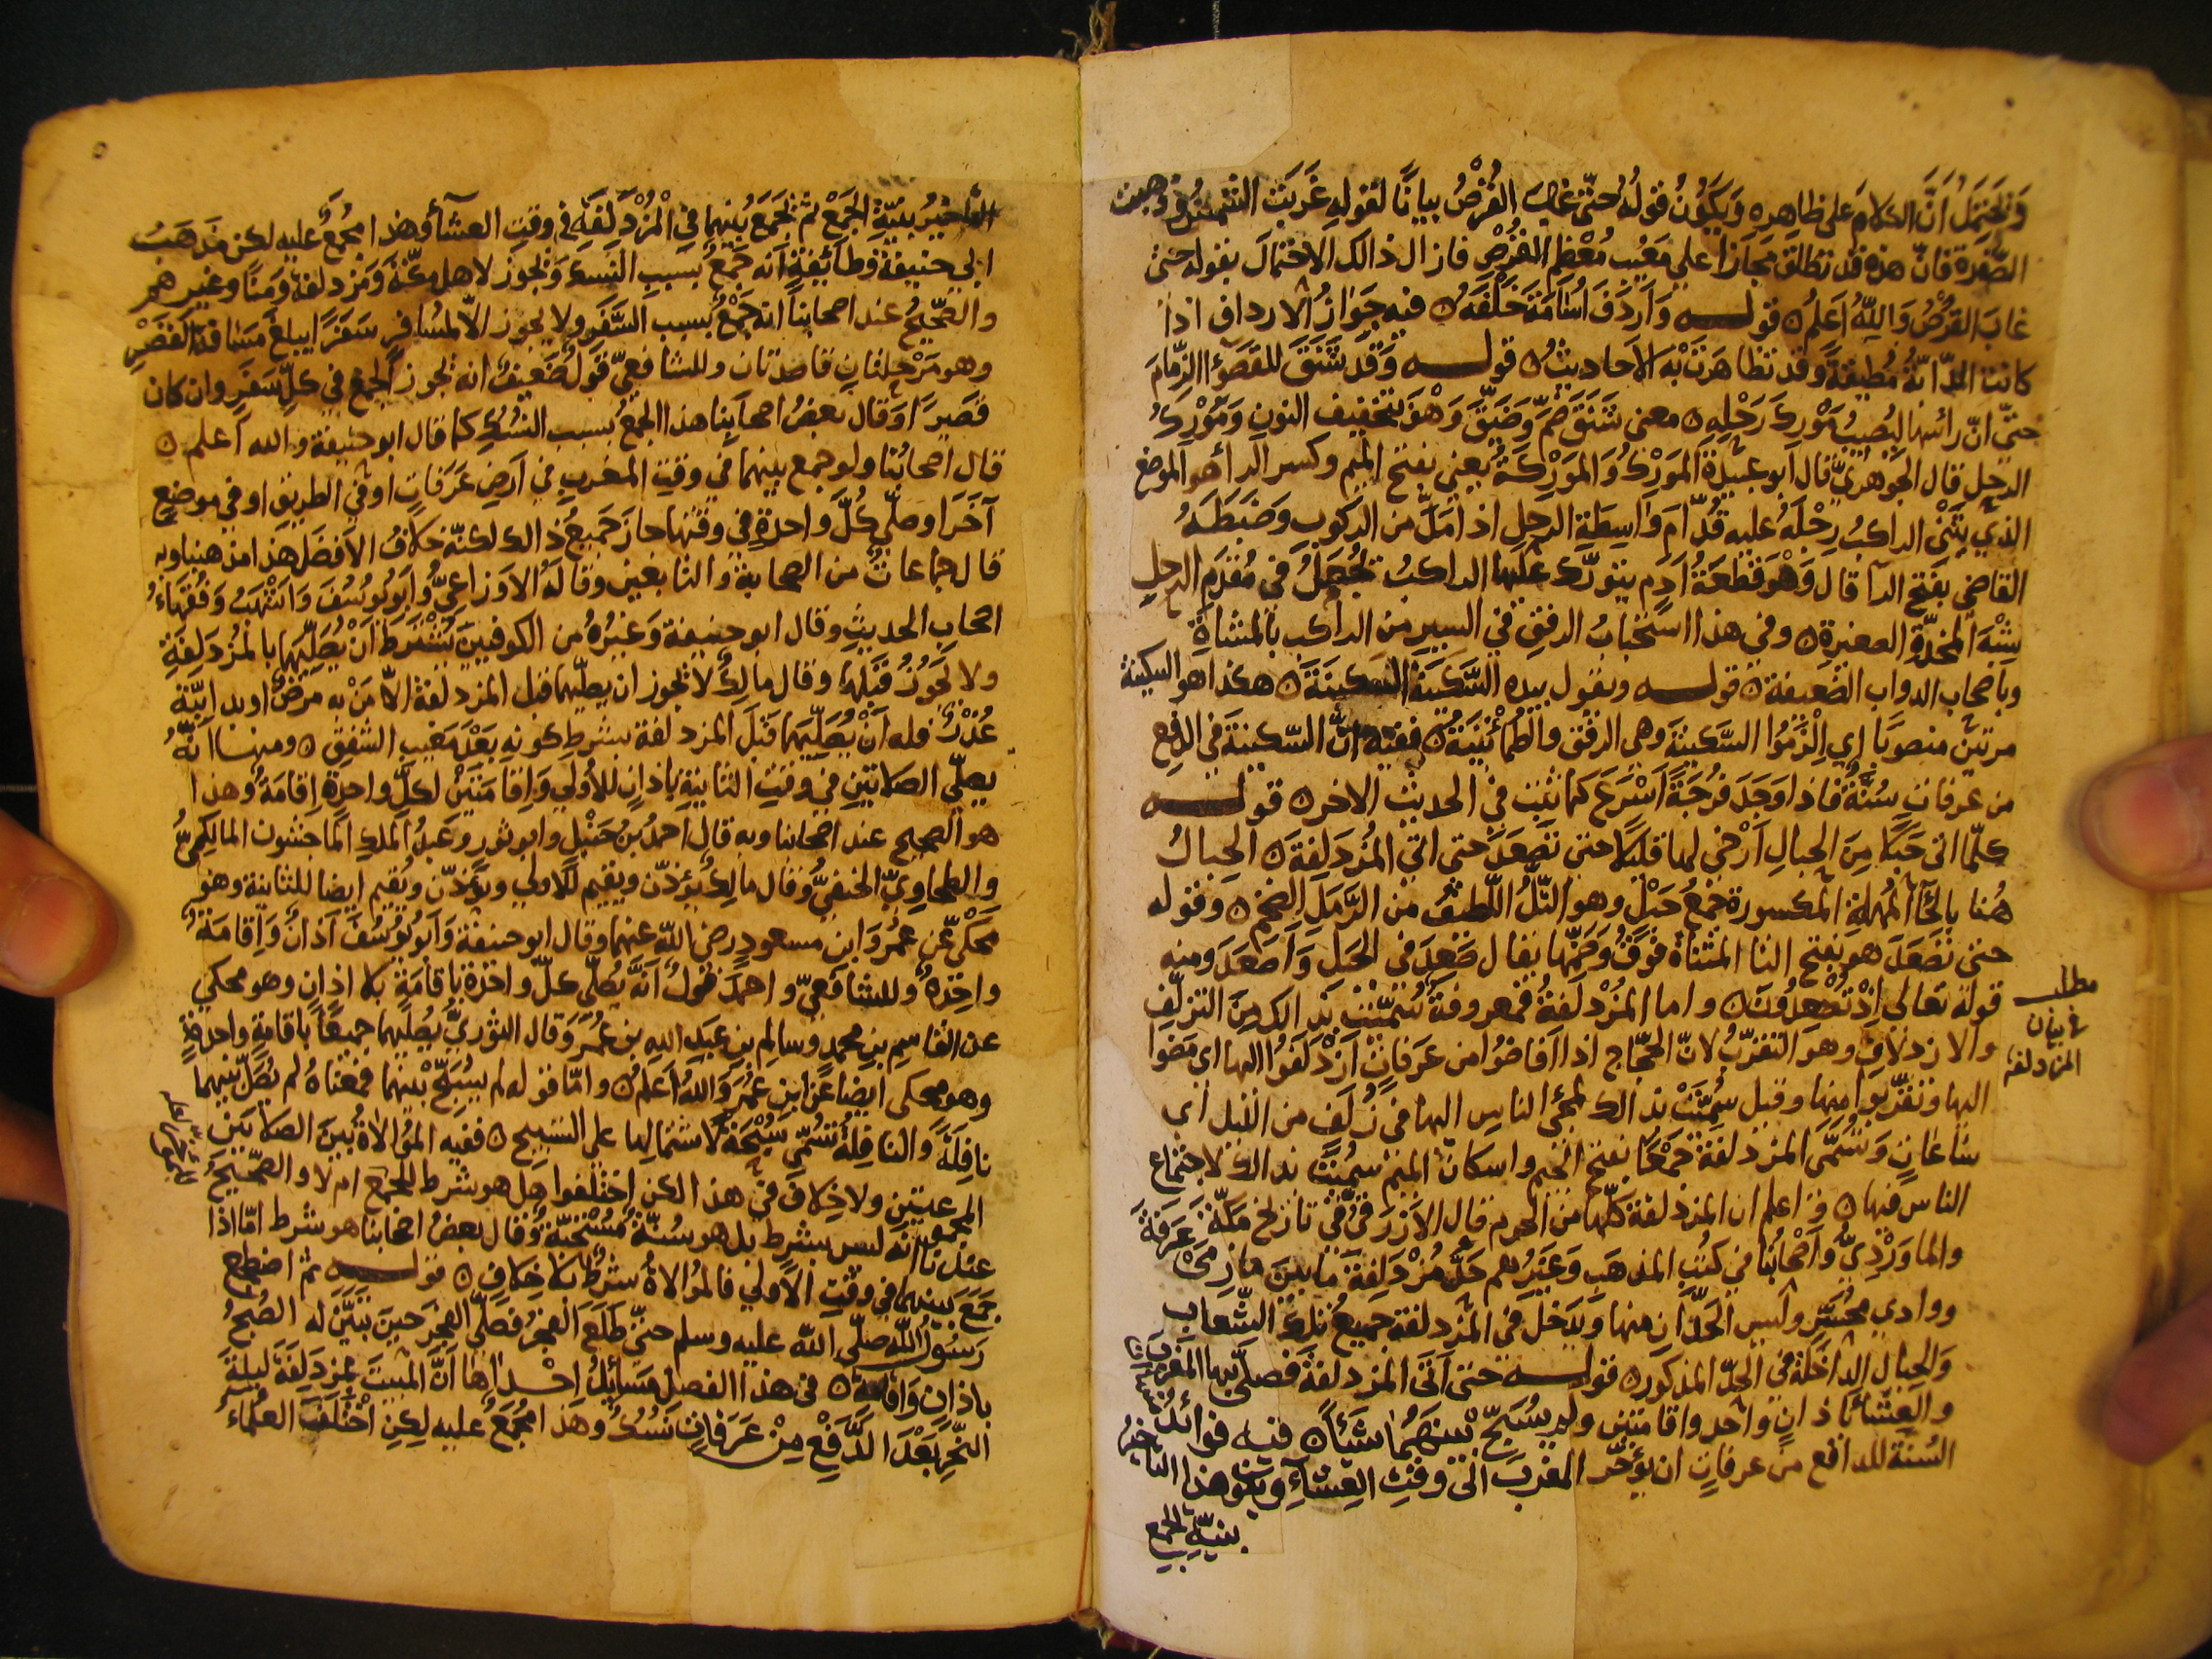 ويحتمل ان الكلام على ظاهره ويكون قوله حتى غاب القرص بيانا لقوله غربت الشمس وذهبت
الصفرة فان هذه قد تطلق مجازا على مغيب معظم القرص فازال ذالك الاحتمال بقوله حتى
غاب القرص والله اعلم ۞ قولـــه واردف اسامة خلفه ۞ فيه جواز الارداف اذا
كانت الدابة مطيقة وقد تظاهرت به الاحاديث ۞ قولـــه وقد شنق للقصوا الزمام
حتى ان رأسها ليصيب مورك رحله ۞ معنى شنق ضم وضيق وهو بتخفيف النون ومورك
الرحل قال الجوهري قال ابو عبيدة المورك والموركة يعني بفتح الميم وكسر الرا هو الموضع
الذي يثني الراكب رجله عليه قدام واسطة الرحل اذا مل من الركوب وضبطه
القاضي بفتح الرا قال وهو قطعة ادم يتورك عليها الراكب تجعل في مقدم الرحل
شبه المخدة الصغيرة ۞ وفي هذا استحباب الرفق في السير من الراكب بالمشاة
وباصحاب الدواب الضعيفة ۞ قولـــه ويقول بيده السكينة السكينة ۞ هكذا هو السكينة
مرتين منصوبا اي الزموا السكينة وهي الرفق والطمأنينة ۞ ففيه ان السكينة في الدفع
من عرفات سنة فاذا وجد فرجة اسرع كما ثبت في الحديث الاخر ۞ قولـــه
كلما اتى حبلا من الحبال ارخى لها قليلا حتى تصعد حتى اتى المزدلفة ۞ الحبال
هنا بالحآ المهملة المكسورة جمع حبل وهو التل اللطيف من الرمل الضخم ۞ وقوله
حتى تصعد هو بفتح التا المثناة فوق وضمها يقال صعد في الحبل واصعد ومنه
قوله تعالى اذ تصعدون ۞ واما المزدلفة فمعروفة سميت بذالك من التزلف
والازدلاف وهو التقرب لان الحجاج اذا افاضوا من عرفات ازدلفوا اليها اي مضوا
اليها وتقربوا منها وقيل سميت بذالك لمجئ الناس اليها في زلف من الليل اي
ساعات وتسمى المزدلفة جمعا بفتح الجيم واسكان الميم سميت بذالك لاجتماع
الناس فيها ۞ واعلم ان المزدلفة كلها من الحرم قال الازرقي في تاريخ مكة
والماوردي واصحابنا في كتب المذهب وغيرهم حد مزدلفة ما بين مازمي عرفة
ووادي محسر وليس الحدان منها ويدخل في المزدلفة جميع تلك الشعاب
والجبال الداخلة في الحد المذكور ۞ قولـــه حتى اتى المزدلفة فصلى بها المغرب
والعشا باذان واحد واقامتين ولم يسبح بينهما شيأ ۞ فيه فوائد
السنة للدافع من عرفات ان يؤخر المغرب الى وقت العشآء وينو هذا التاخير
بنية الجمع
مطلب
في بيان
المزدلفة
التأخير بنية الجمع ثم يجمع بينهما في المزدلفة في وقت العشآ وهذا مجمع عليه لكن مذهب
ابي حنيفة وطآئفة انه جمع بسبب النسك ويجوز لاهل مكة ومزدلفة ومنا وغيرهم
والصحيح عند اصحابنا انه جمع بسبب السفر ولا يجوز الا لمسافر سفرا يبلغ مسافة القصر
وهو مرحلتان قاصدتان وللشافعي قول ضعيف انه يجوز الجمع في كل سفر وان كان
قصيرا وقال بعض اصحابنا هذا الجمع بسبب النسك كما قال ابو حنيفة والله اعلم ۞
قال اصحابنا ولو جمع بينهما في وقت المغرب في ارض عرفات او في الطريق او في موضع
آخر او صلى كل واحدة في وقتها جاز جميع ذالك لكنه خلاف الافضل هذا مذهبنا وبه
قال جماعات من الصحابة والتابعين وقاله الاوزاعي وابو يوسف واشهب وفقهاء
اصحاب الحديث وقال ابو حنيفة وغيره من الكوفيين يشترط ان يصليهما بالمزدلفة
ولا يجوز قبلها وقال مالك لا يجوز ان يصليهما قبل المزدلفة الا من به مرض او بدابته
عذر فله ان يصليهما قبل المزدلفة بشرط كونه بعد مغيب الشفق ۞ ومنها انه
يصلي الصلاتين في وقت الثانية باذان للأولى واقامتين لكل واحدة اقامة وهذا
هو الصحيح عند اصحابنا وبه قال احمد بن حنبل وابو ثور وعبد الملك الماجشون المالكي
والطحاوي الحنفي وقال مالك يؤذن ويقيم للاولى ويؤذن ويقيم ايضا للثانية وهو
محكي عن عمر وابن مسعود رضي الله عنهما وقال ابو حنيفة وابو يوسف اذان واقامة
واحدة وللشافعي واحمد قول انه يصلي كل واحدة باقامة بلا اذان وهو محكي
عن القاسم بن محمد وسالم بن عبد الله بن عمر وقال الثوري يصليهما جميعا باقامة واحدة
وهو محكي ايضا عن ابن عمر والله اعلم ۞ واما قوله لم يسبح بينهما فمعناه لم يصل بينهما
نافلة والنافلة تسمى سبحة لاشتمالها على التسبيح ۞ ففيه الموالاة بين الصلاتين
المجموعتين ولا خلاف في هذا لكن اختلفوا هل هو شرط للجمع ام لا والصحيح
عندنا انه ليس بشرط بل هو سنة مستحبة وقال بعض اصحابنا هو شرط اما اذا
جمع بينهما في وقت الاولى فالموالاة شرط بلا خلاف ۞ قولـــه ثم اضطجع
رسول الله صلى الله عليه وسلم حتى طلع الفجر فصلى الفجر حين تبين له الصبح
باذان واقامة ۞ في هذا الفصل مسائل احداها ان المبيت بمزدلفة ليلة
النحر بعد الدفع من عرفات نسك وهذا مجمع عليه لكن اختلف العلماء